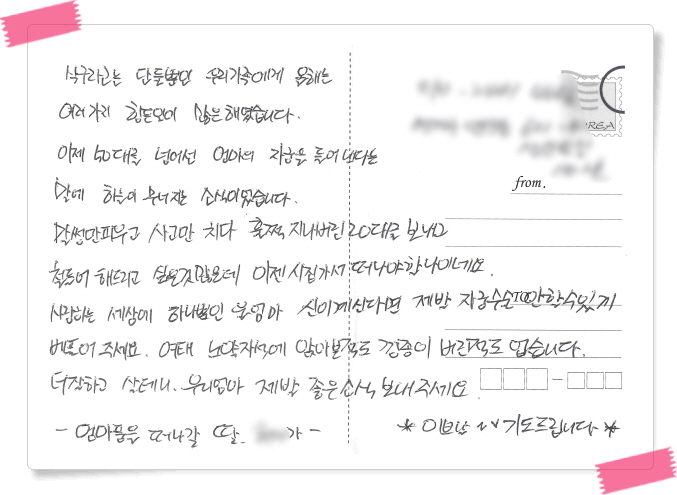 식구라고는 단둘뿐인 우리가족에게 올해는
여러가지 힘든일이 많은해였습니다.
이제 50대를 넘어선 엄마의 자궁을 들어낸다는
말에 하늘이 무너지는 소식이었습니다.
말썽만피우고 사고만 치다 훌쩍 지나버린 20대를 보내고
철들어 해드리고 싶은것많은데 이젠 시집가서 떠나야할나이네요.
사랑하는 세상에 하나뿐인 울엄마 신이계신다면 제발 자궁수술만할수있게
베풀어 주세요. 여태 노약자석에 앉아본적도 껌종이 버린적도 없습니다.
더착하고 살테니. 우리엄마 제발 좋은소식 보내주세요.
- 엄마품을 떠나갈 딸. 가 -
* 이쁜맘 ~~ 기도드립니다 *
REA
from.